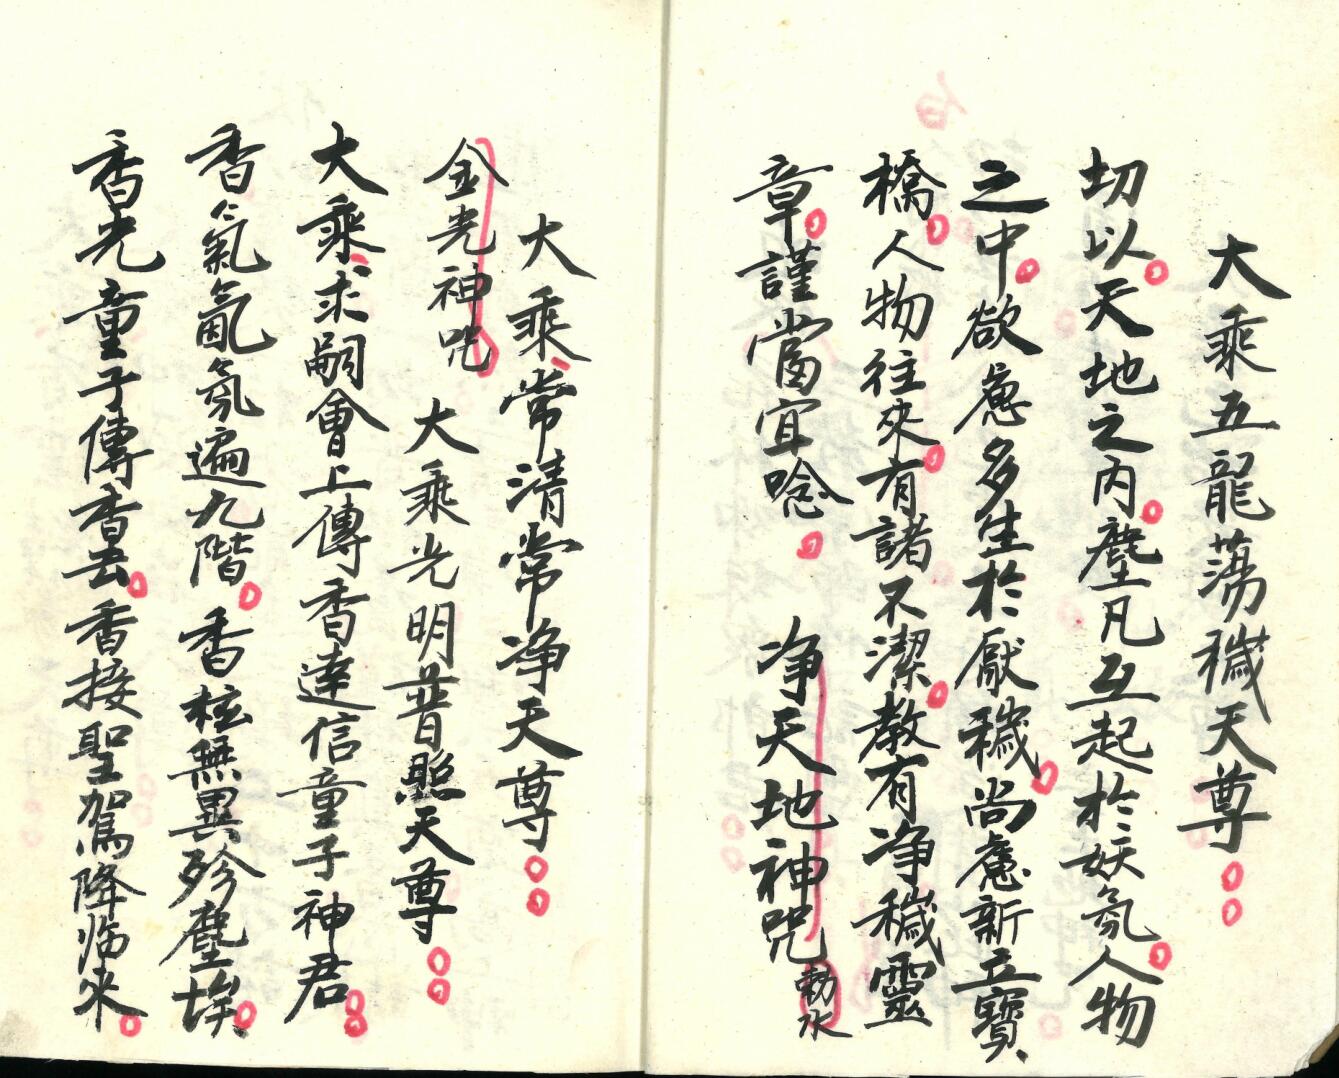 大乘五龍蕩穢天尊
切以天地之內塵凡互起於妖氛人物
之中欲慮多生於厭穢尚慮新立寶
橋人物往來有諸不潔教有净穢靈
章謹當宜唸　净天地神咒　勅水
大乘常清常净天尊
金光神咒　大乘光明普照天尊
大乘求嗣會上傳香達信童子神君
香氣氤氛遍九階香核無異殄塵埃
香光童子傳香去香接聖駕降临來